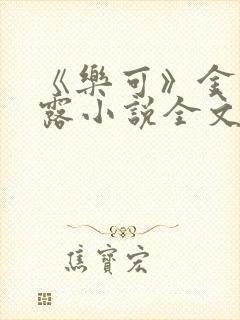 《樂可》金
露小說全文
焦寶宏